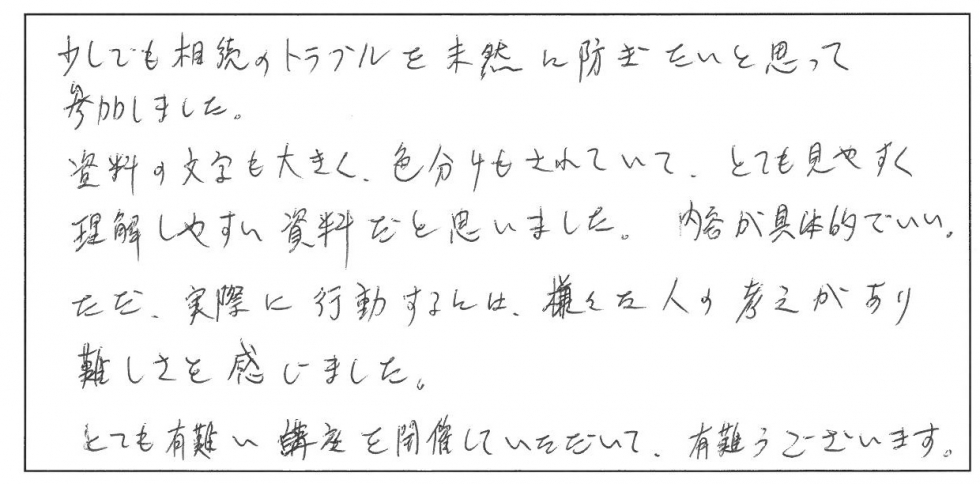 少しでも相続のトラブルを未然に防ぎたいと思って
参加しました。
資料の文字も大きく、色分けもされていて、とても見やすく
理解しやすい資料だと思いました。 内容が具体的でいい。
ただ、実際に行動するには、様々な人の考えがあり
難しさを感じました。
とても有難い講座を開催していただいて、有難うございます。